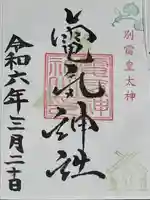 別雷皇太神
電気神社
令和六年三月二十日